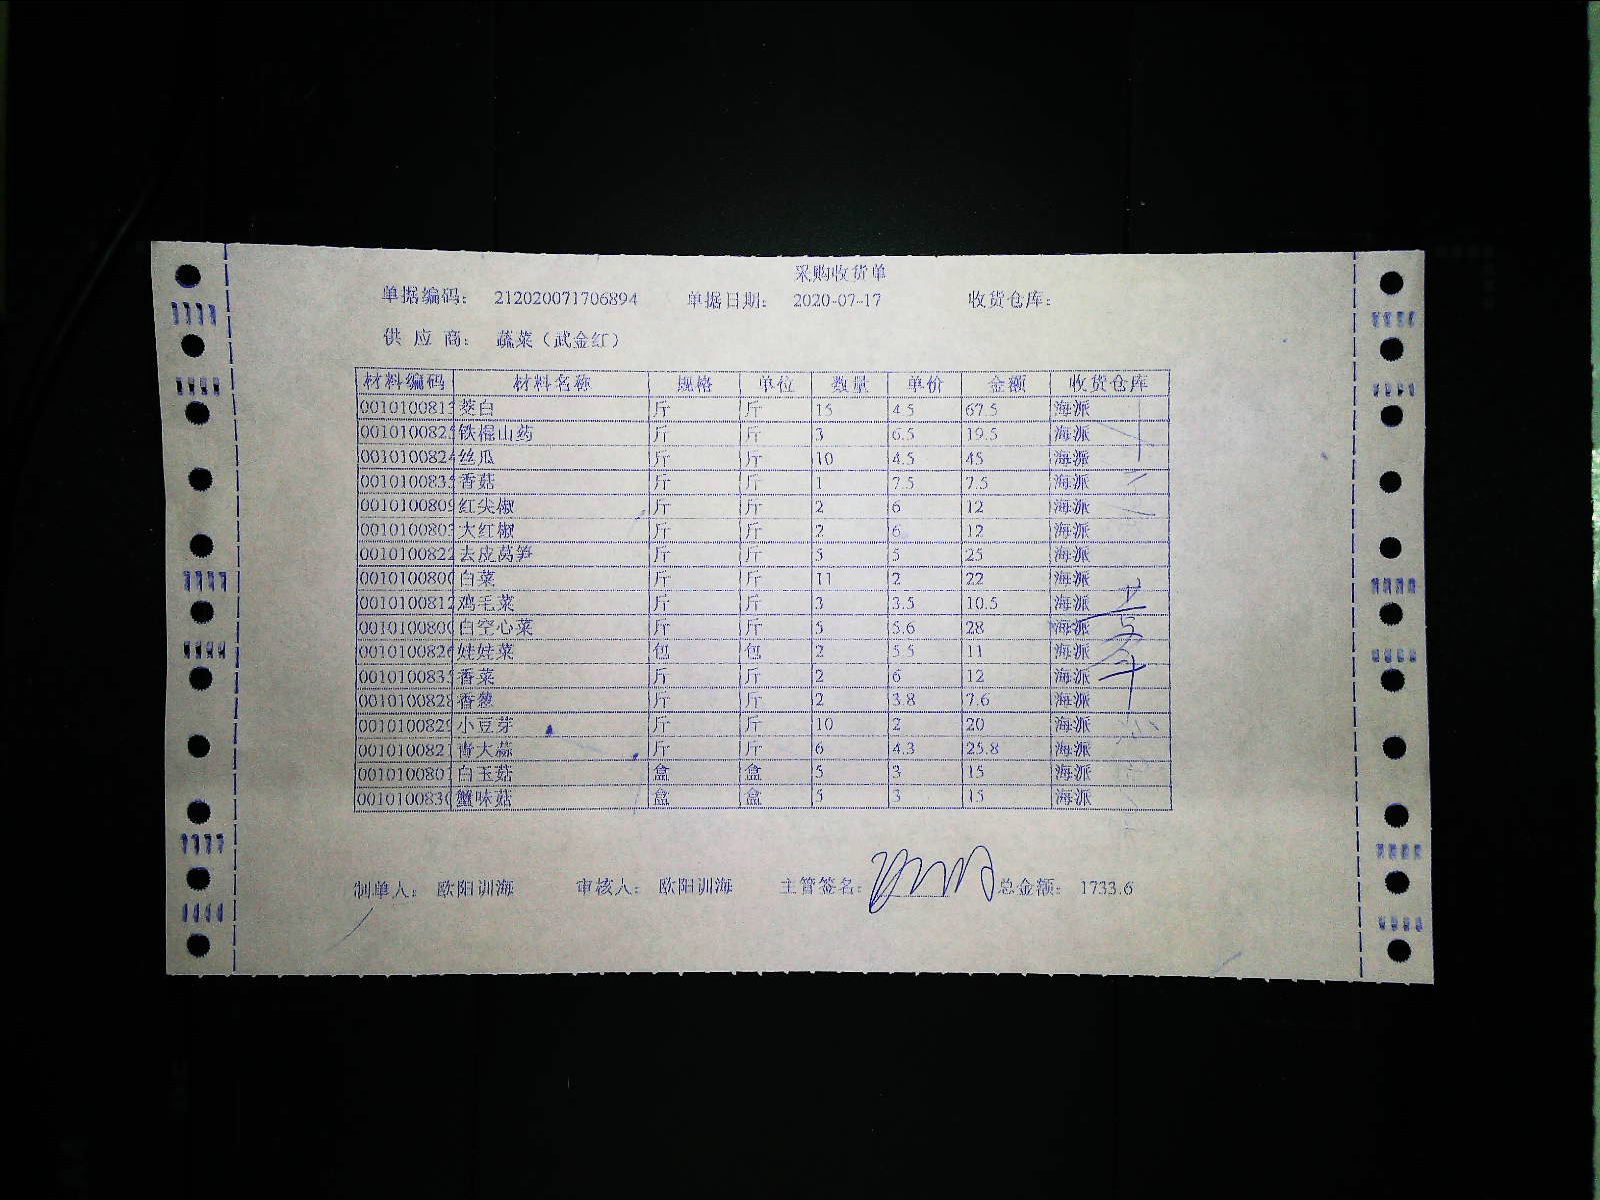 采购收货单
单据编码： 212020071706894 单据日期： 2020-07-17 收货仓库：
供 应 商： 蔬菜（武金红）
材料编码 材料名称 规格 单位 数量 单价 金额 收货仓库
0010100813 茭白 斤 斤 15 4.5 67.5 海派
001010082 铁棍山药 斤 斤 3 6.5 19.5 海派
0010100824 丝瓜 斤 斤 10 4.5 45 海派
001010083 香菇 斤 斤 1 7.5 7.5 海派
0010100809 红尖椒 斤 斤 2 6 12 海派
001010080 大红椒 斤 斤 2 6 12 海派
0010100822 去皮莴笋 斤 斤 5 5 25 海派
001010080 白菜 斤 斤 11 2 22 海派
0010100812 鸡毛菜 斤 斤 3 3.5 10.5 海派
001010080 白空心菜 斤 斤 5 5.6 28 海派
001010082 娃娃菜 包 包 2 5.5 11 海派
001010083 香菜 斤 斤 2 6 12 海派
0010100828 香葱 斤 斤 2 3.8 7.6 海派
0010100829 小豆芽 斤 斤 10 2 20 海派
0010100821 青大蒜 斤 斤 6 4.3 25.8 海派
0010100801 白玉菇 盒 盒 5 3 15 海派
001010083 蟹味菇 盒 盒 5 3 15 海派
制单人： 欧阳训海 审核人： 欧阳训海 主管签名： 总金额： 1733.6